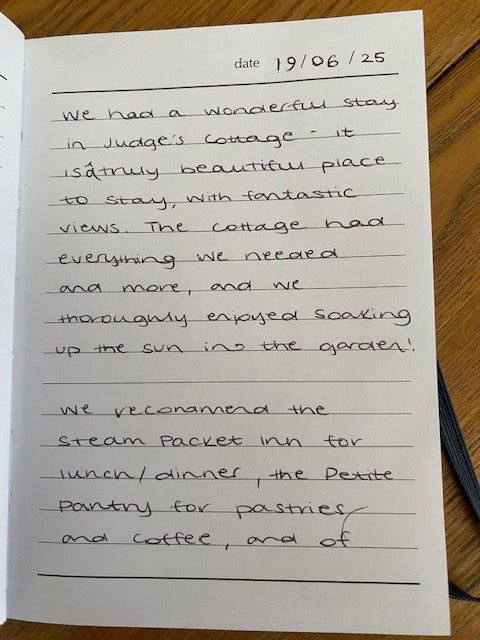 date 19/06/25
We had a wonderful stay
in Judge's cottage - it
is a truly beautiful place
to stay, with fantastic
views. The cottage had
everything we needed
and more, and we
thoroughly enjoyed soaking
up the sun in the garden!
We recommend the
Steam Packet Inn for
lunch/dinner, the Petite
Pantry for pastries
and coffee, and of